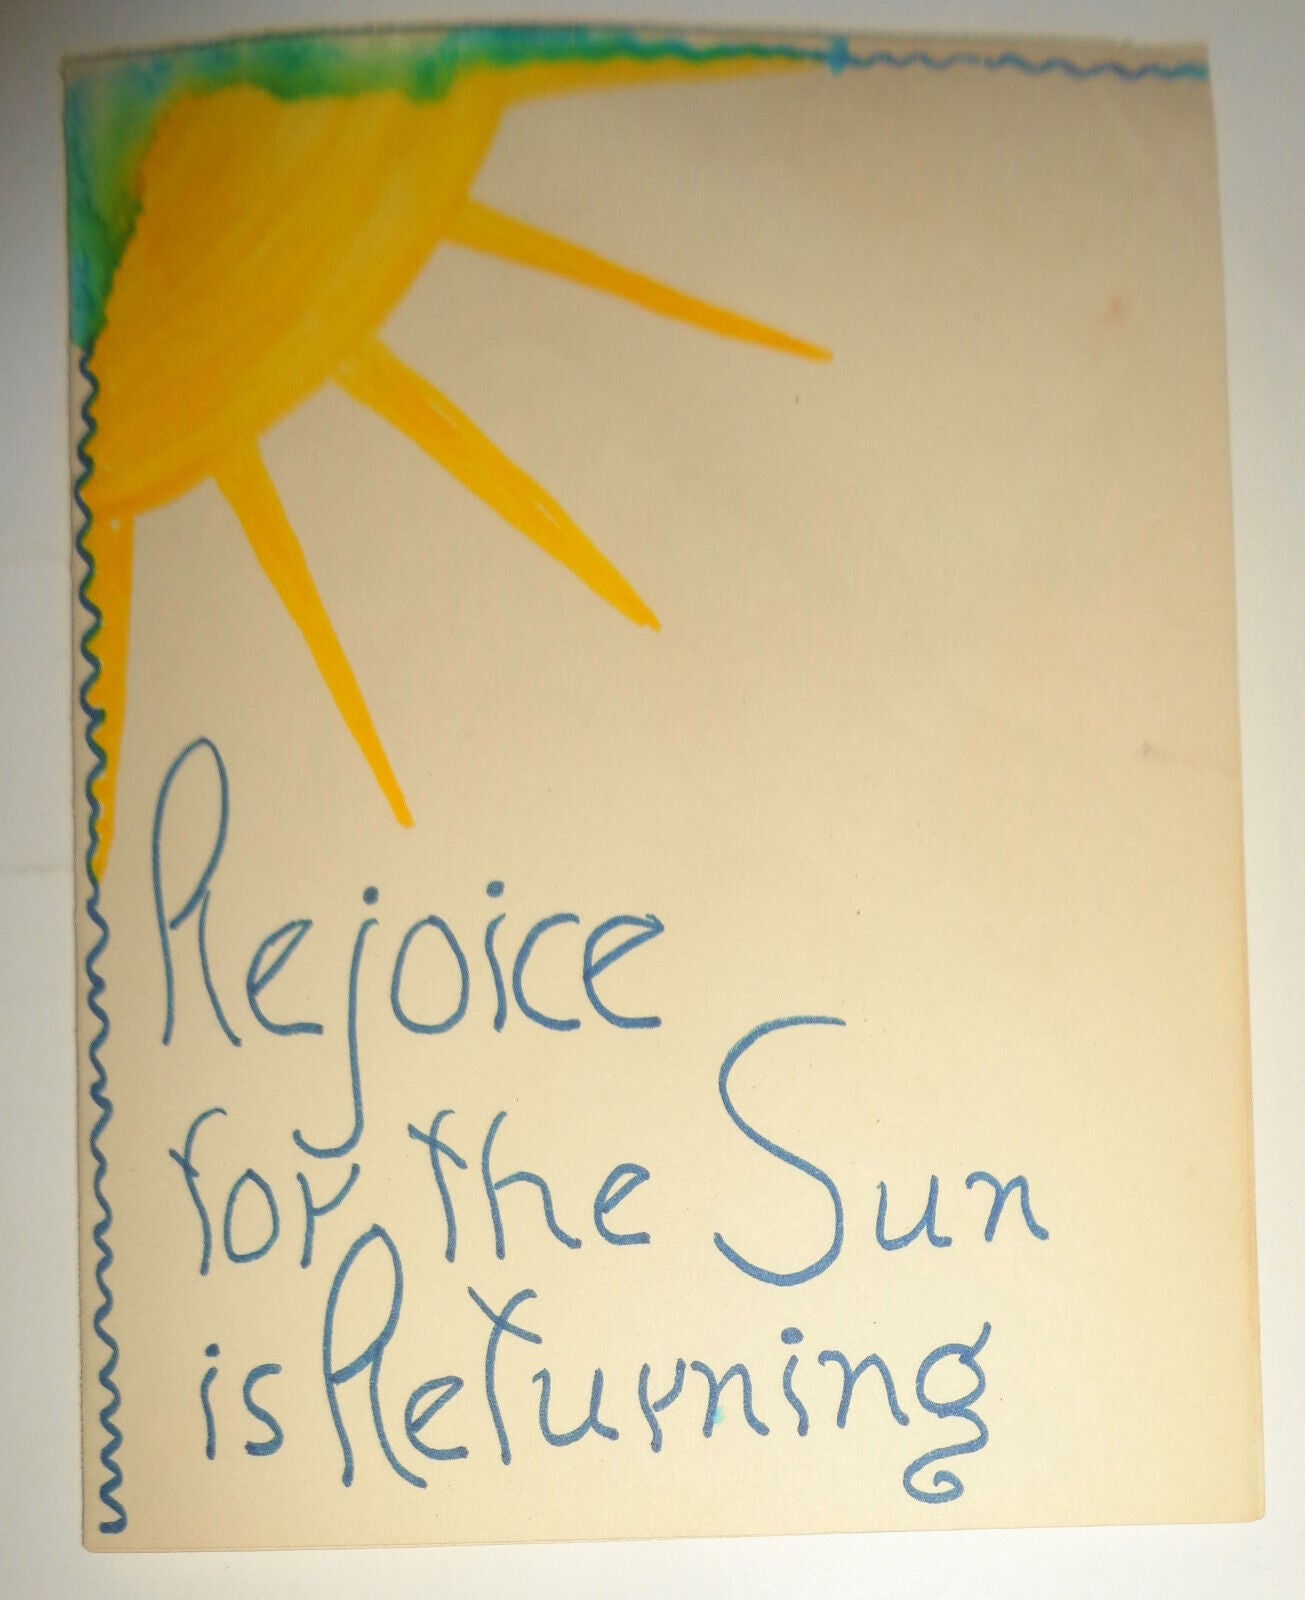 Rejoice
for the Sun
is Returning